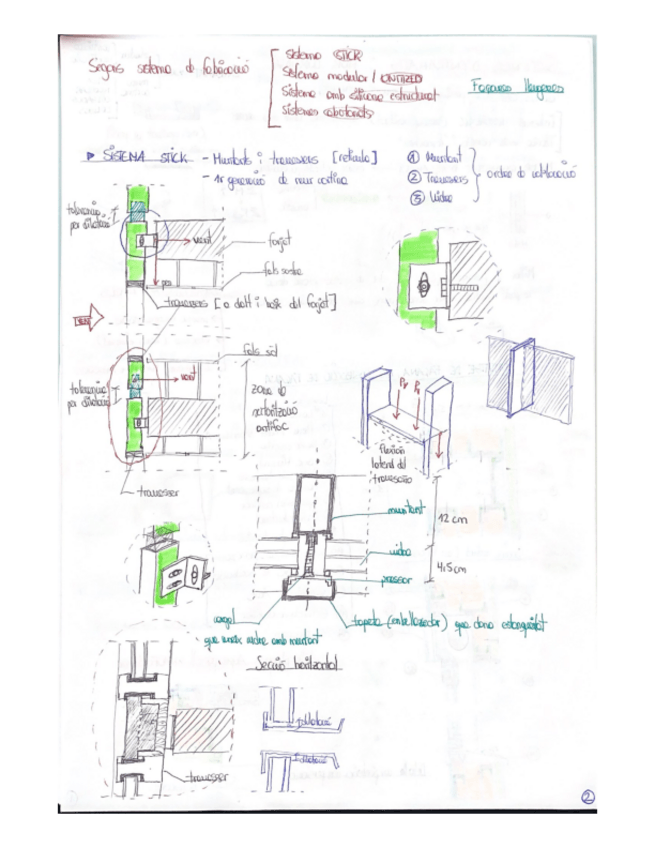 Segons sistema de fabricació
sistema STICK
sistema modular / UNITIZED
sistema amb silicona estructural
sistemes abotonats
Façanes lleugeres
SISTEMA STICK - Muntants i travessers [retícula]
- 1r generació de mur cortina
① Muntant
② Travessers
③ Vidre
ordre de col·locació
tolerància
per dilatació
vent
forjat
pp
fals sostre
travessers [a dalt i baix del forjat]
fals sòl
vent
tolerància
per dilatació
zona de
sectorització
antifoc
travesser
flexió
lateral del
travesser
muntant
12 cm
vidre
4,5cm
pressor
cargol
que uneix vidre amb muntant
tapeta (embellecedor) que dona estanquitat
Secció horitzontal
dilatació
dilatació
travesser
②